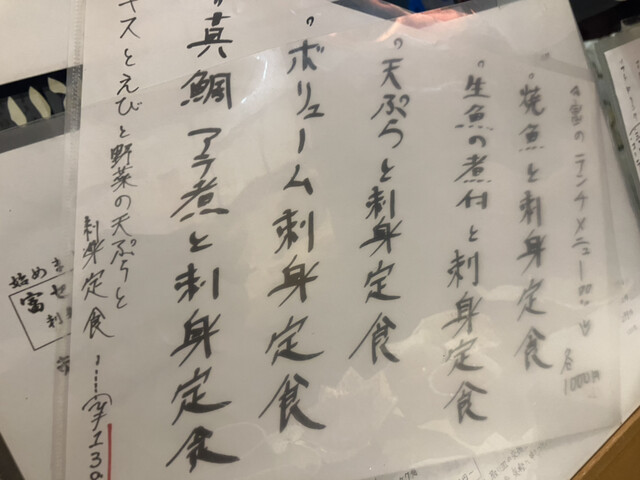 ランチメニュー
各1000円
"焼魚と刺身定食
"生魚の煮付と刺身定食
"天ぷらと刺身定食
"ボリューム刺身定食
"真鯛アラ煮と刺身定食
キスとえびと野菜の天ぷらと
刺身定食
始め
富セ